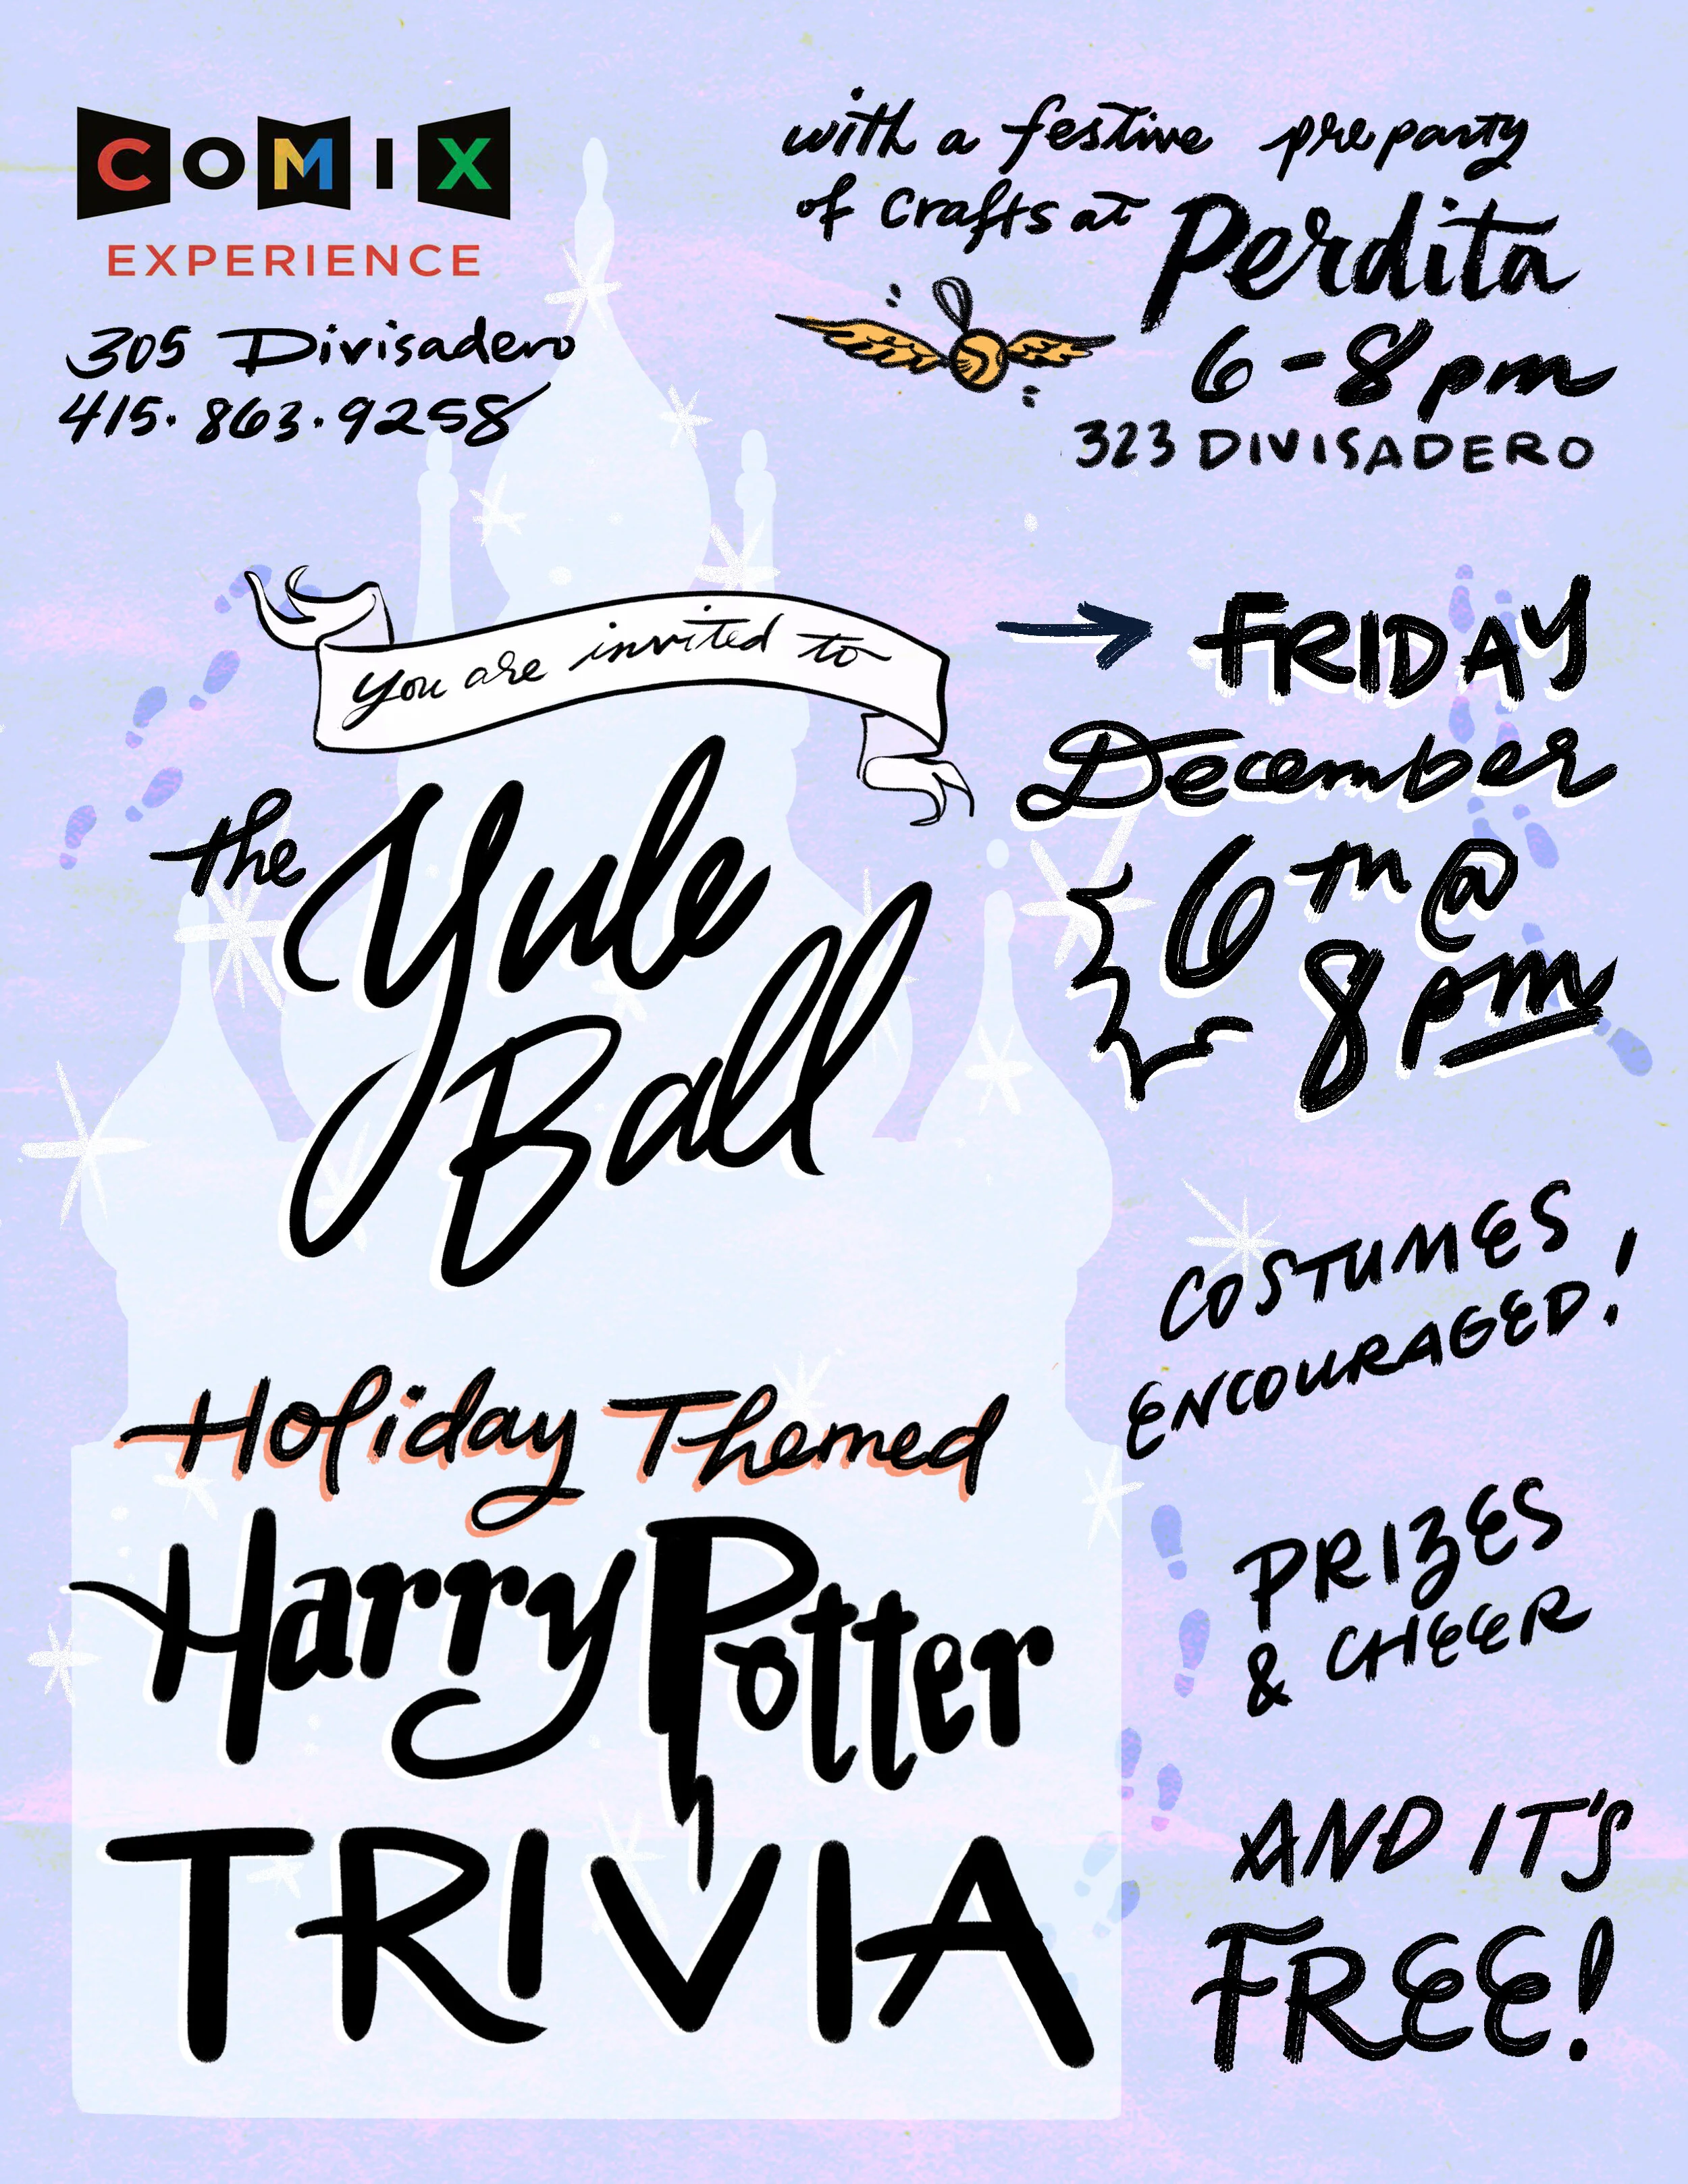 COMIX
EXPERIENCE
305 Divisadero
415.863.9258
with a festive preparty
of Crafts at Perdita
6-8pm
323 DIVISADERO
you are invited to
the Yule
Ball
FRIDAY
December
6th @
8pm
COSTUMES
ENCOURAGED!
Holiday Themed
Harry Potter
TRIVIA
PRIZES
& CHEER
AND IT'S
FREE!